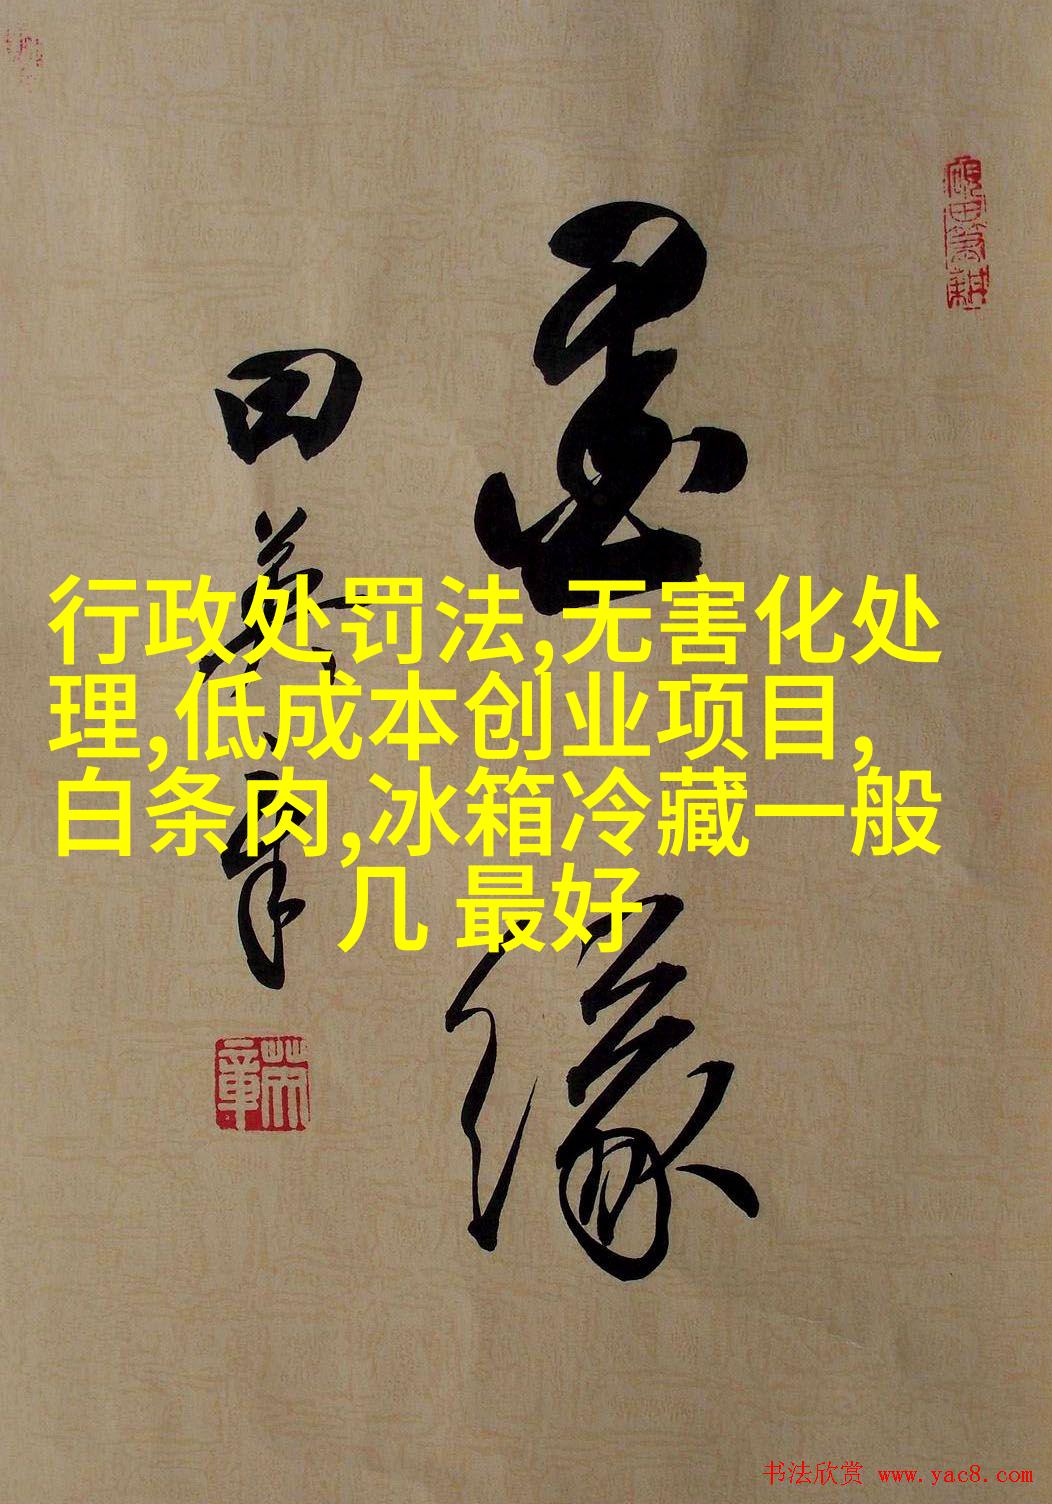 行政处罚法,无害化处
理,低成本创业项目,
白条肉,冰箱冷藏一般
几 最好
墨缘
田英章
书法欣赏 www.yac8.com